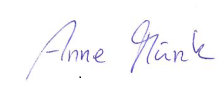 Anne Münk